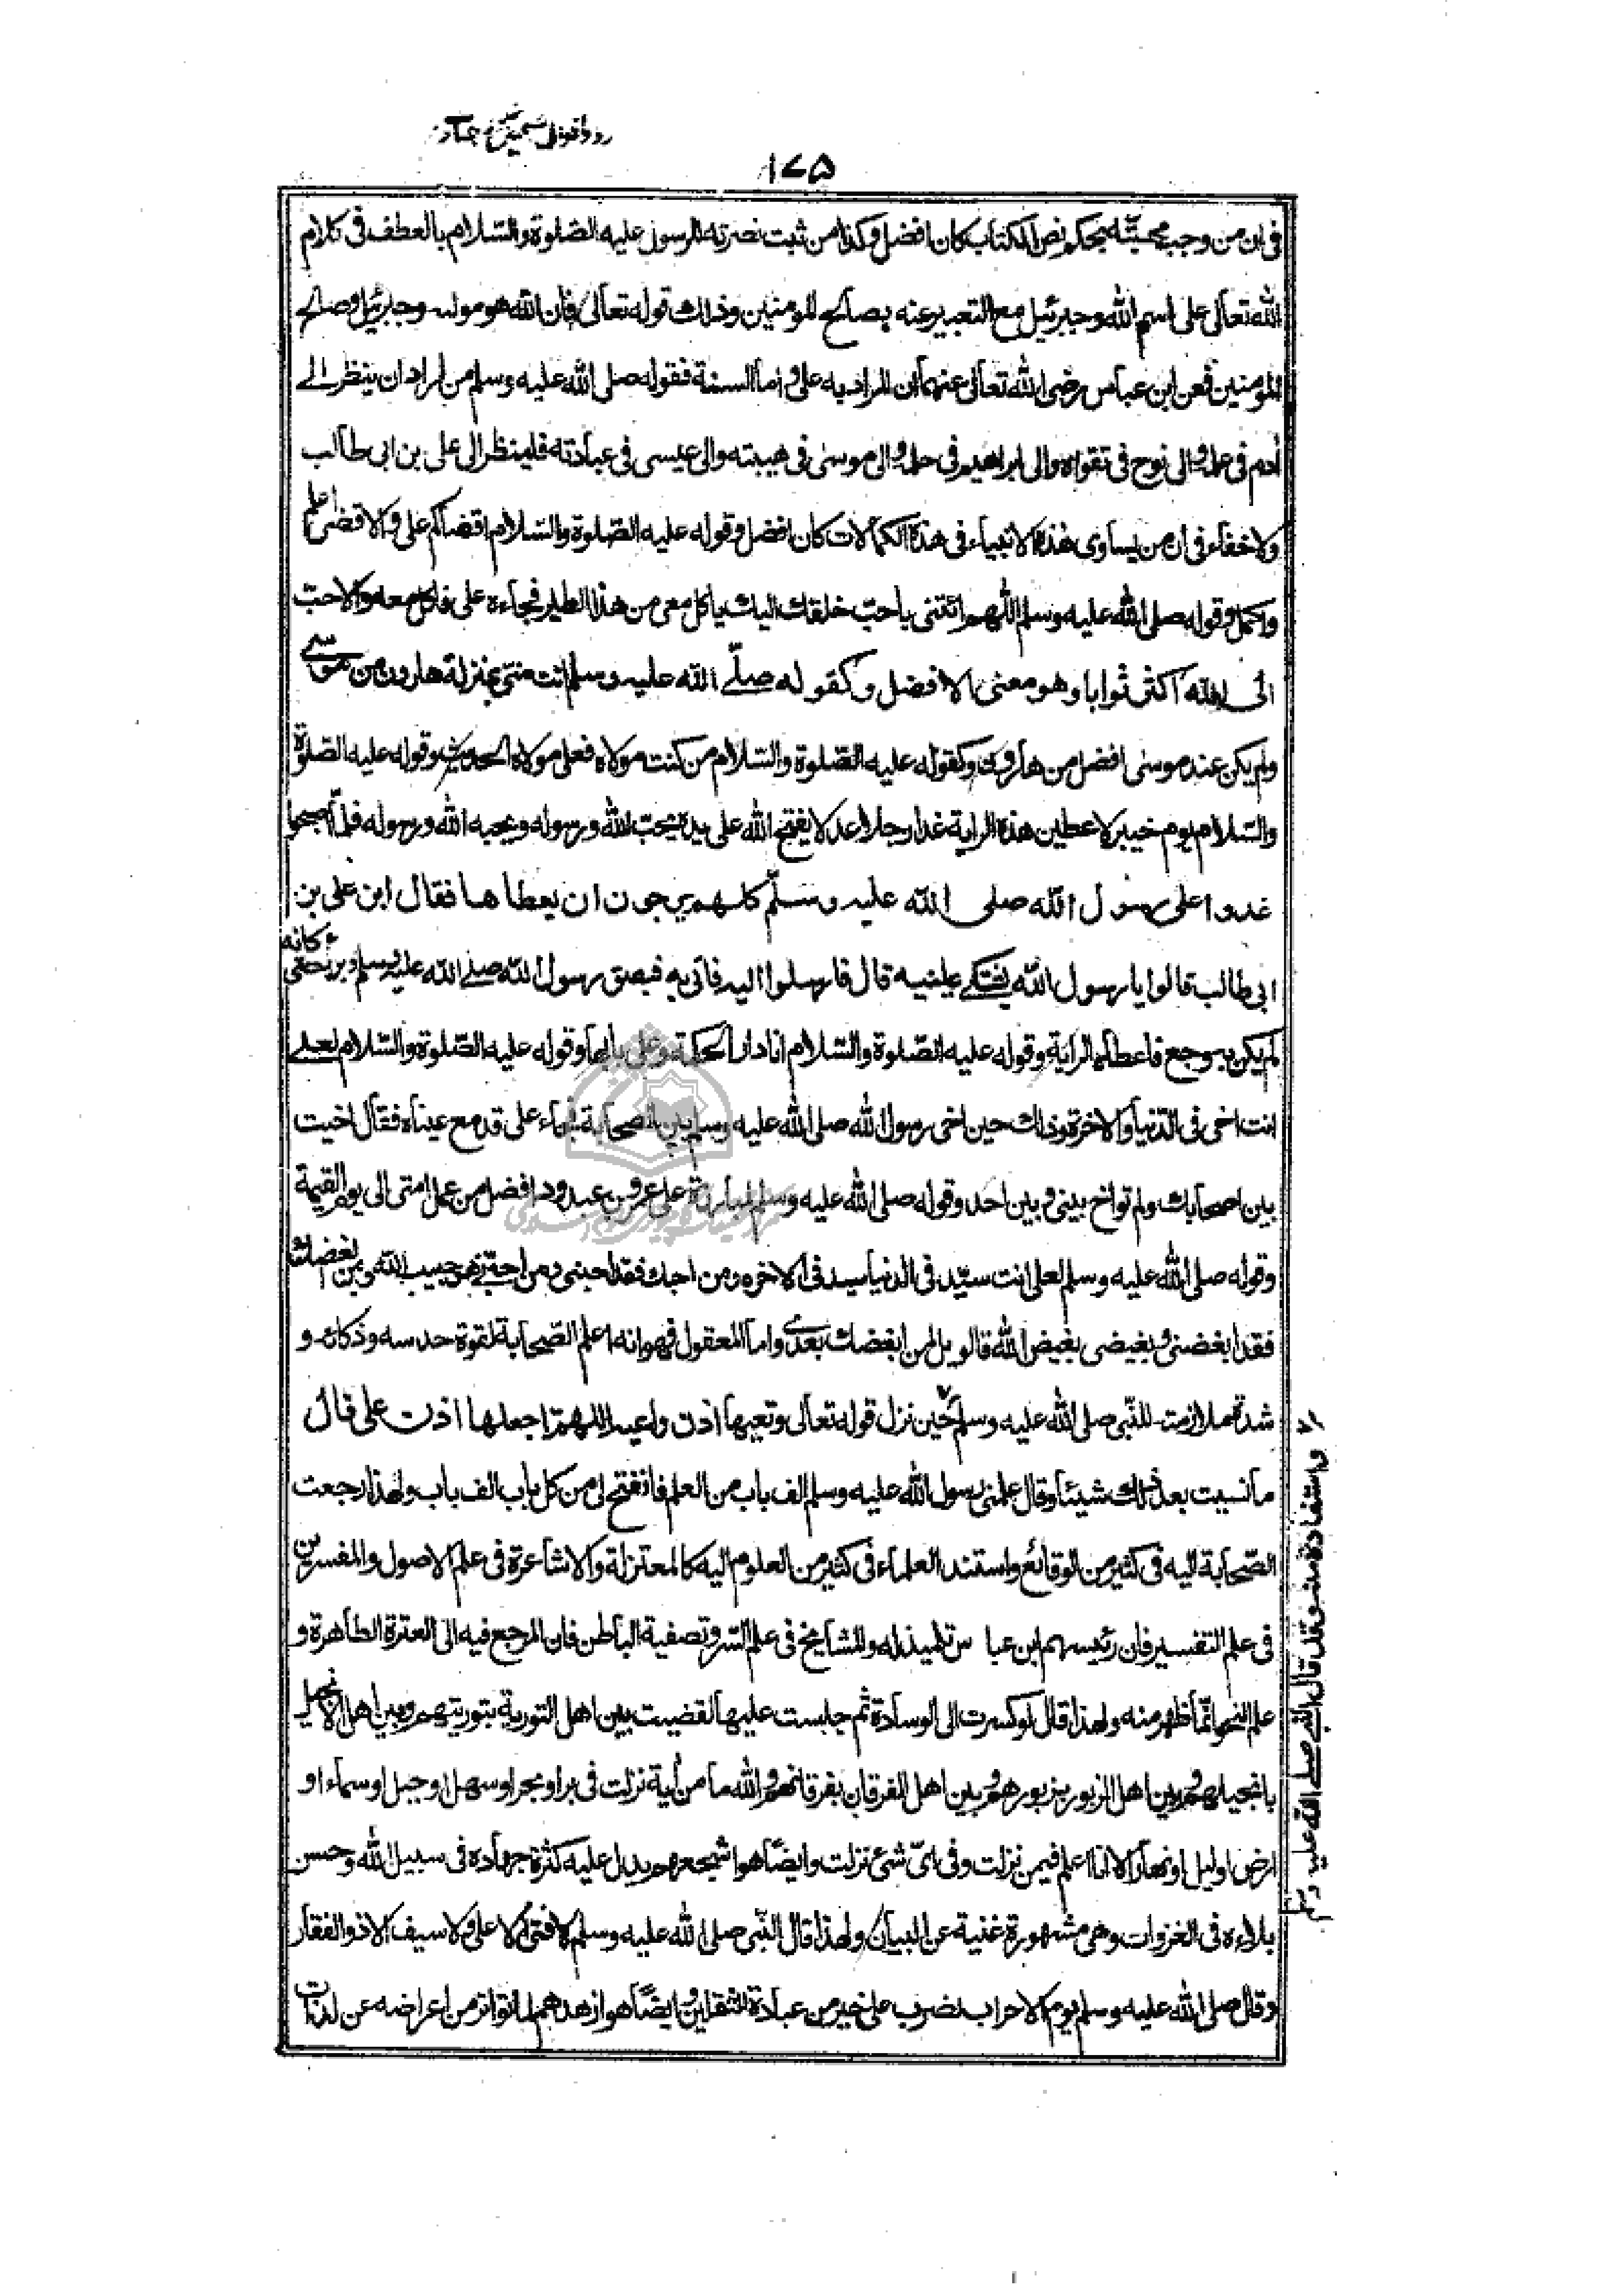 ١٧٥
فى ان من وجب محبته بحكم نص الكتاب كان افضل وكذا من ثبت نصرته للرسول عليه الصلوة والسلام بالعطف فى كلام
الله تعالى على اسم الله وجبرئيل مع التعبير عنه بصالح المومنين وذلك قوله تعالى فان الله هو موله وجبرئيل وصالح
المومنين فعن ابن عباس رضى الله تعالى عنهما ان المراد به على واما السنة فقوله صلى الله عليه وسلم من اراد ان ينظر الے
آدم فى علمه والى نوح فى تقواه والى ابراهيم فى حلمه والى موسى فى هيبته والى عيسى فى عبادته فلينظر الى على بن ابى طالب
ولا خفاء فى ان من يساوى هذه الانبياء فى هذه الكمالات كان افضل وقوله عليه الصلوة والسلام اقضاكم على والاقضى اعلم
واكمل وقوله صلى الله عليه وسلم اللهم ائتنى باحب خلقك اليك ياكل معى من هذا الطير فجاءه على فاكل معه والاحب
الى الله اكثر ثوابا وهو معنى الافضل وكقوله صلے الله عليه وسلم انت منى بمنزلة هارون من موسے
ولم يكن عند موسى افضل من هارون وكقوله عليه الصلوة والسلام من كنت مولاه فعلى مولاه الحديث وقوله عليه الصلوة
والسلام يوم خيبر لاعطين هذه الراية غدا رجلا يفتح الله على يده يحب الله ورسوله ويحبه الله ورسوله فلما اصبحوا
غدوا على رسول الله صلى الله عليه وسلم كلهم يرجون ان يعطاها فقال اين على بن
ابى طالب قالوا يا رسول الله يشتكے عينيه قال فارسلوا اليه فاتى به فبصق رسول الله صلے الله عليه وسلم وبرئ حتى كانه
لم يكن به وجع فاعطاه الراية وقوله عليه الصلوة والسلام انا دار الحكمة وعلى بابها وقوله عليه الصلوة والسلام لعلے
انت اخى فى الدنيا والاخرة وذلك حين اخى رسول الله صلى الله عليه وسلم بين الصحابة فجاء على تدمع عيناه فقال اخيت
بين اصحابك ولم تواخ بينى وبين احد وقوله صلى الله عليه وسلم لمبارزة على عمرو بن عبدود افضل من عمل امتى الى يوم القيمة
وقوله صلى الله عليه وسلم لعلى انت سيد فى الدنيا سيد فى الاخره ومن احبك فقد احبنى ومن احبنى فهو حبيب الله ومن ابغضك
فقد ابغضنى وبغيضى بغيض الله فالويل لمن ابغضك بعدے واما المعقول فهو انه اعلم الصحابة لقوة حدسه وذكائه و
شدة ملازمته للنبى صلى الله عليه وسلم حين نزل قوله تعالى وتعيها اذن واعية اللهم اجعلها اذن على قال
ما نسيت بعد ذلك شيئا وقال علمنى رسول الله عليه وسلم الف باب من العلم فانفتح لى من كل باب الف باب ولهذا رجعت
الصحابة اليه فى كثير من الوقائع واستند العلماء فى كثير من العلوم اليه كالمعتزلة والاشاعرة فى علم الاصول والمفسرين
فى علم التفسير فان رئيسهم ابن عباس تلميذ له والمشايخ فى علم السر وتصفية الباطن فان المرجع فيه الى العترة الطاهرة و
علم النحو انما ظهر منه ولهذا قال لو كسرت الى الوسادة ثم جلست عليها لقضيت بين اهل التورية بتوريتهم وبين اهل الانجيل
بانجيلهم وبين اهل الزبور بزبورهم وبين اهل الفرقان بفرقانهم والله ما من آية نزلت فى بر او بحر او سهل او جبل او سماء او
ارض او ليل او نهار الا انا اعلم فيمن نزلت وفى اى شئ نزلت وايضا هو اشجعهم يدل عليه كثرة جهاده فى سبيل الله وحسن
بلاءه فى الغزوات وهى مشهورة غنية عن البيان ولهذا قال النبى صلى الله عليه وسلم لا فتى الا على ولا سيف الا ذو الفقار
وقال صلى الله عليه وسلم يوم الاحزاب لضرب على خير من عبادة الثقلين وايضا هو ازهدهم لما تواتر من اعراضه عن لذات
واستفادة منه وقد قال النبے صلے الله عليه وسلم